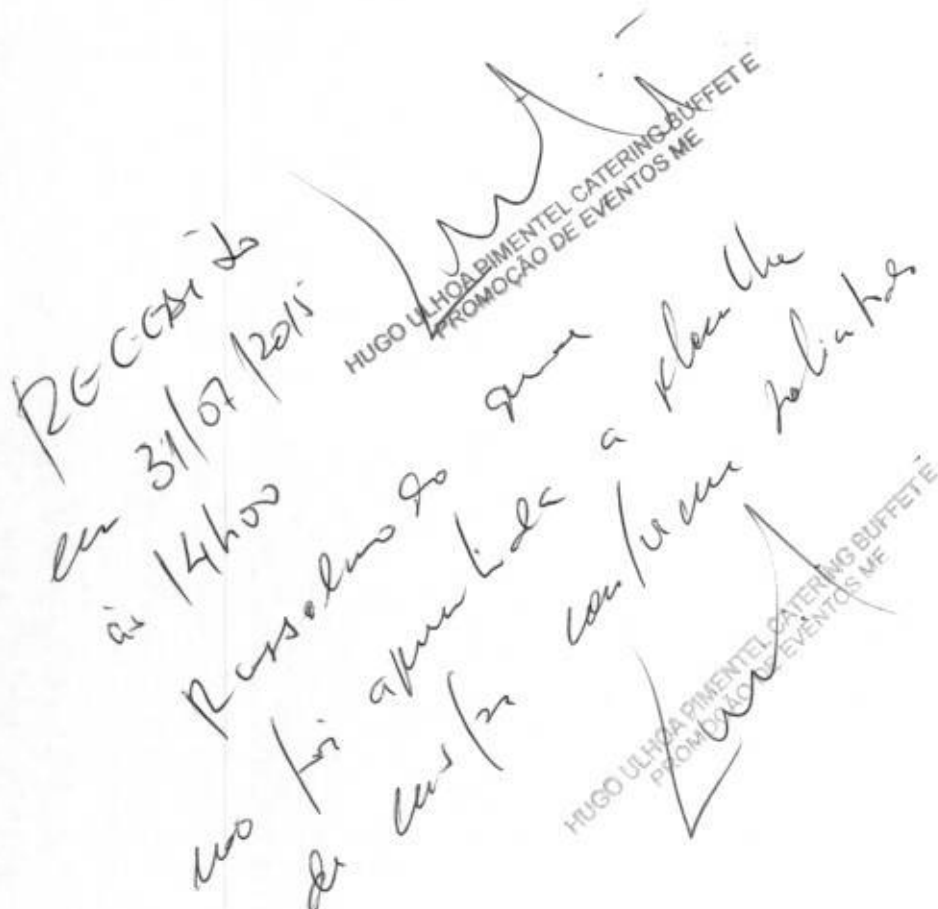 HUGO ULHOA PIMENTEL CATERING BUFFET E
PROMOÇÃO DE EVENTOS ME
RECEBIDO
em 31/07/2015
às 14h00
Ressalvando que
não foi apresentada a planilha
de custos conforme
HUGO ULHOA PIMENTEL CATERING BUFFET E
PROMOÇÃO DE EVENTOS ME